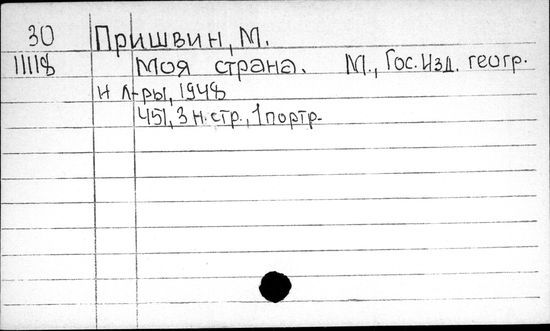 30 Пришвин, М.
11118 Моя страна. М., Гос. Изд. геогр.
и л-ры, 1948
451, 3 н. стр., 1 портр.